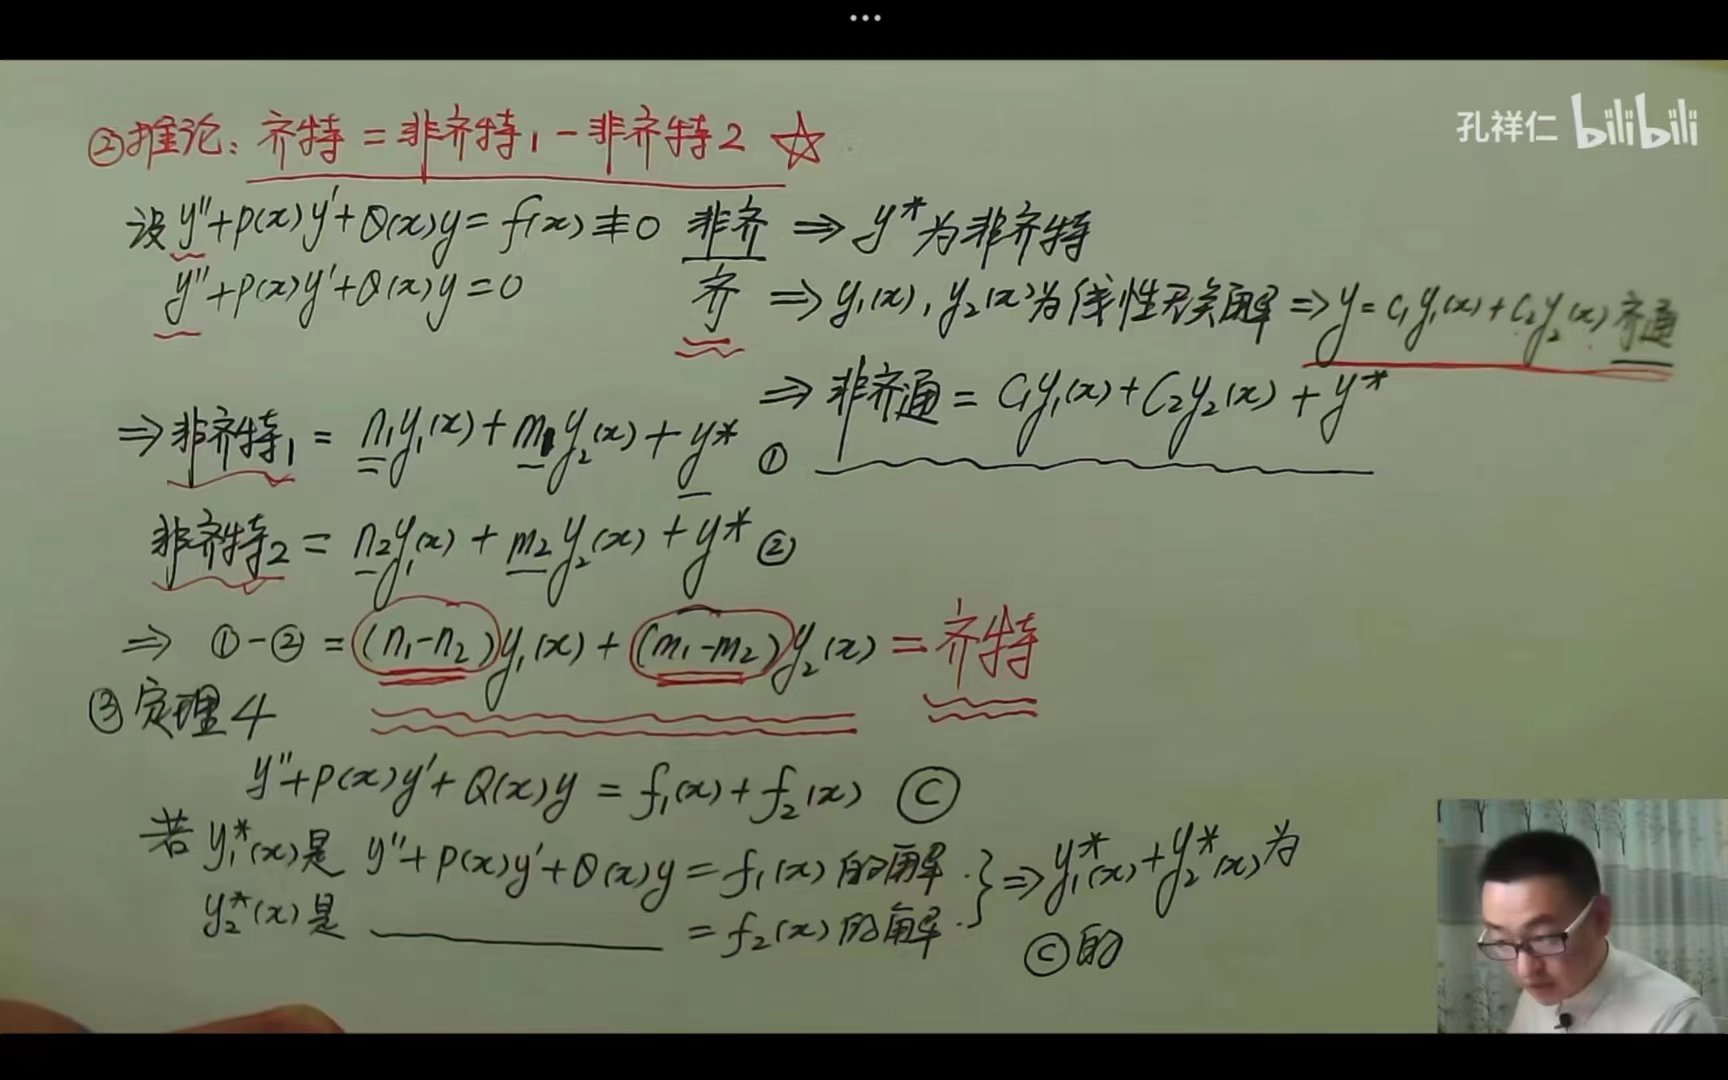 ...
孔祥仁 bilibili
②推论：齐特 = 非齐特1 - 非齐特2 ☆
设 y''+p(x)y'+Q(x)y=f(x)≢0 非齐 ⇒ y*为非齐特
y''+p(x)y'+Q(x)y=0 齐 ⇒ y₁(x), y₂(x)为线性无关解 ⇒ y=C₁y₁(x)+C₂y₂(x) 齐通
⇒ 非齐通 = C₁y₁(x)+C₂y₂(x)+y*
⇒ 非齐特1 = n₁y₁(x)+m₁y₂(x)+y* ①
非齐特2 = n₂y₁(x)+m₂y₂(x)+y* ②
⇒ ①-② = (n₁-n₂)y₁(x)+(m₁-m₂)y₂(x) = 齐特
③定理4
y''+p(x)y'+Q(x)y = f₁(x)+f₂(x) Ⓒ
若 y₁*(x)是 y''+p(x)y'+Q(x)y=f₁(x)的解. } ⇒ y₁*(x)+y₂*(x)为
y₂*(x)是 ________ = f₂(x)的解.
Ⓒ的